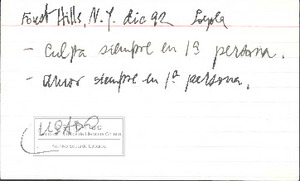 Forest Hills, N.Y. dic 92
- Culpa siempre en 1ª persona.
- Amor siempre en 1ª persona.
USADO